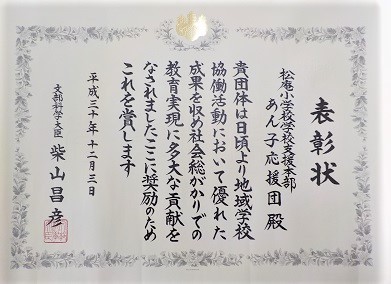 表彰状
松庵小学校学校支援本部
あん子応援団殿
貴団体は日頃より地域学校
協働活動において優れた
成果を収め社会総がかりでの
教育実現に多大な貢献を
なされましたここに奨励のため
これを賞します
平成三十年十二月三日
文部科学大臣 柴山昌彦